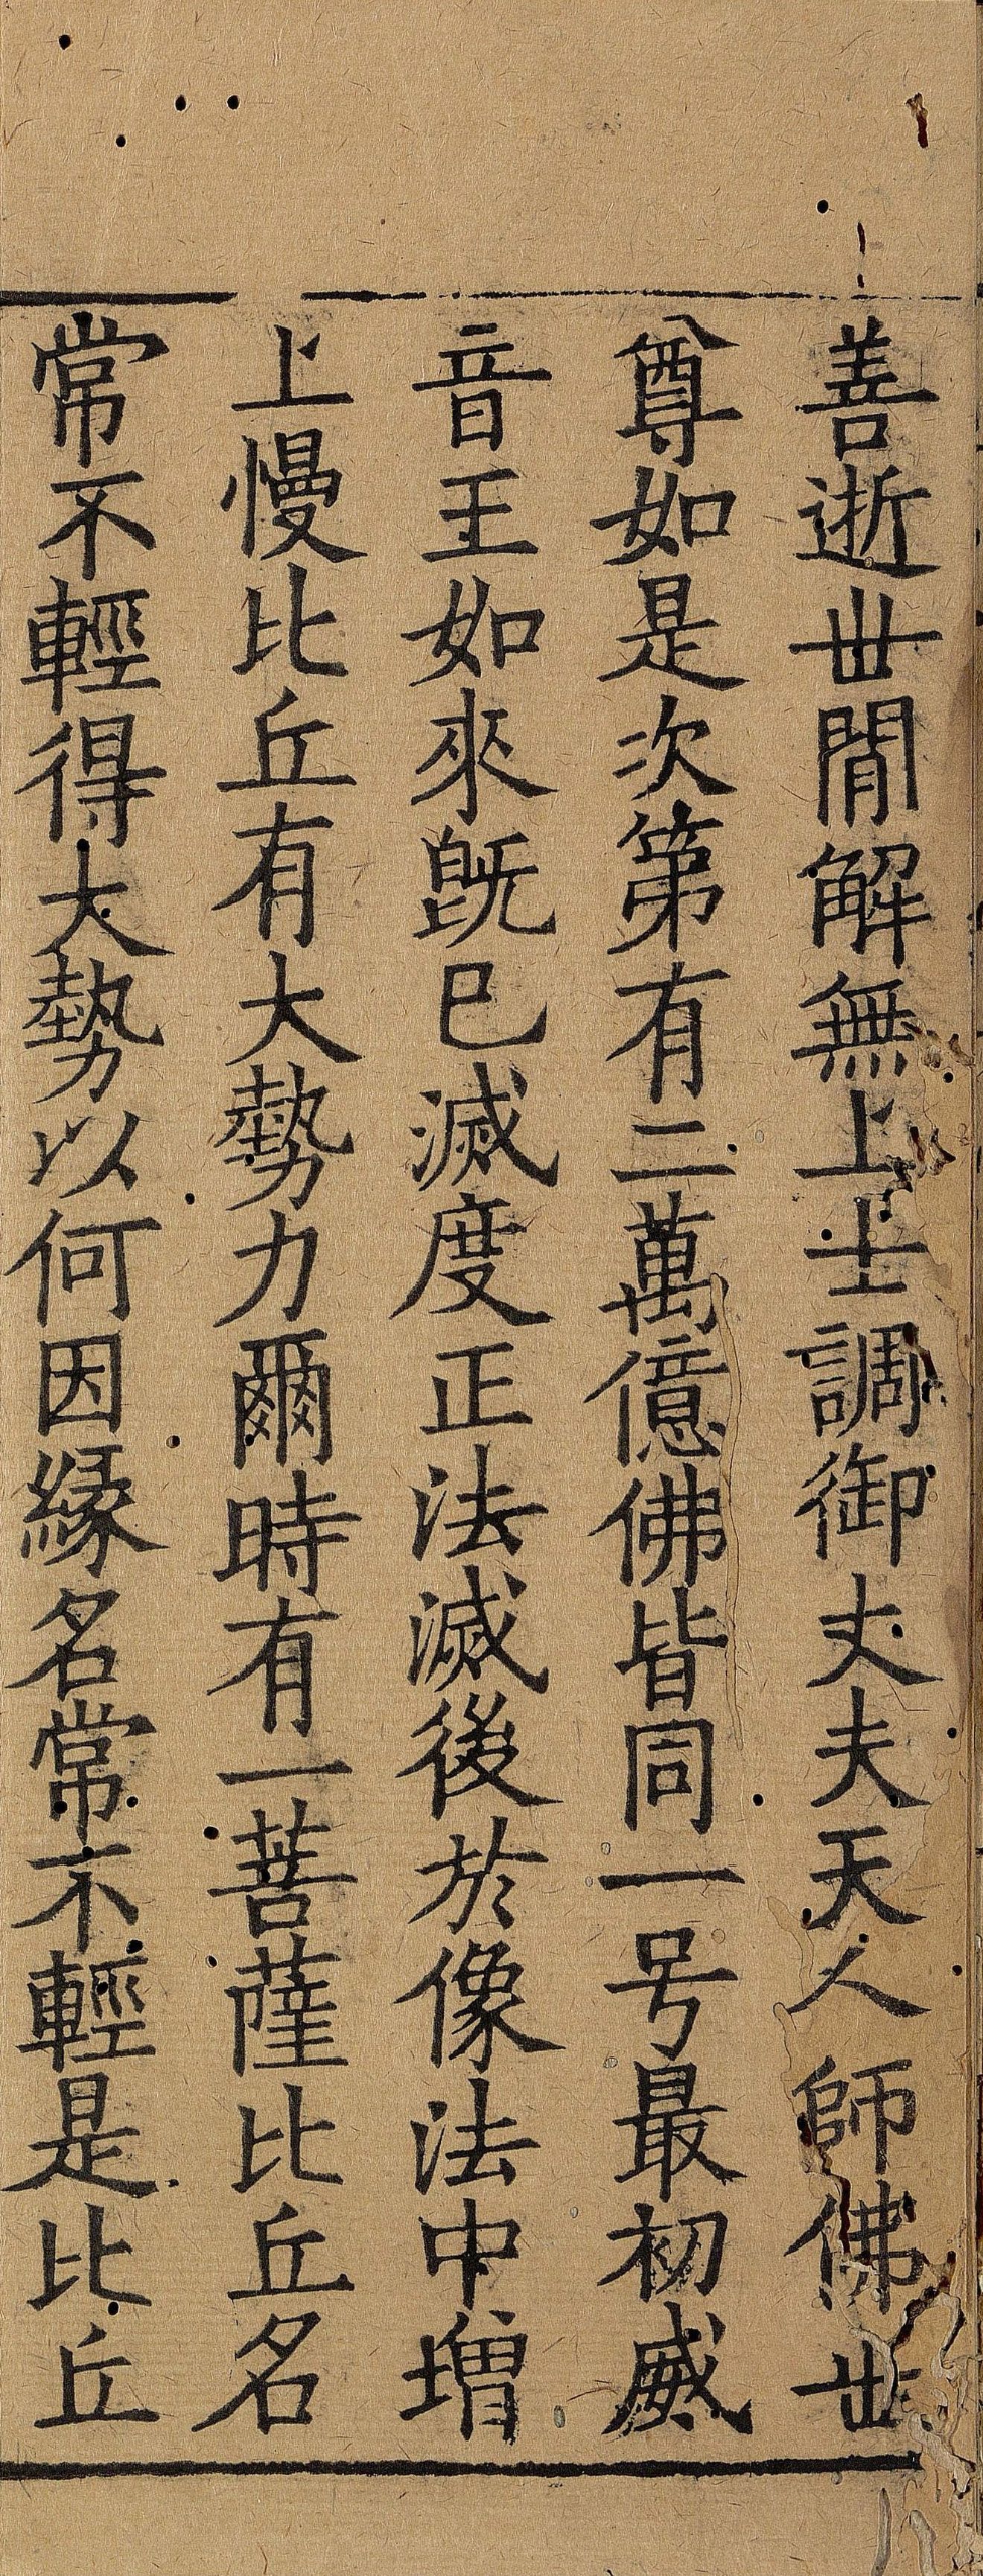 善逝世閒解無上士調御丈夫天人師佛世
尊如是次第有二萬億佛皆同一号最初威
音王如來旣已滅度正法滅後於像法中增
上慢比丘有大勢力爾時有一菩薩比丘名
常不輕得大勢以何因緣名常不輕是比丘